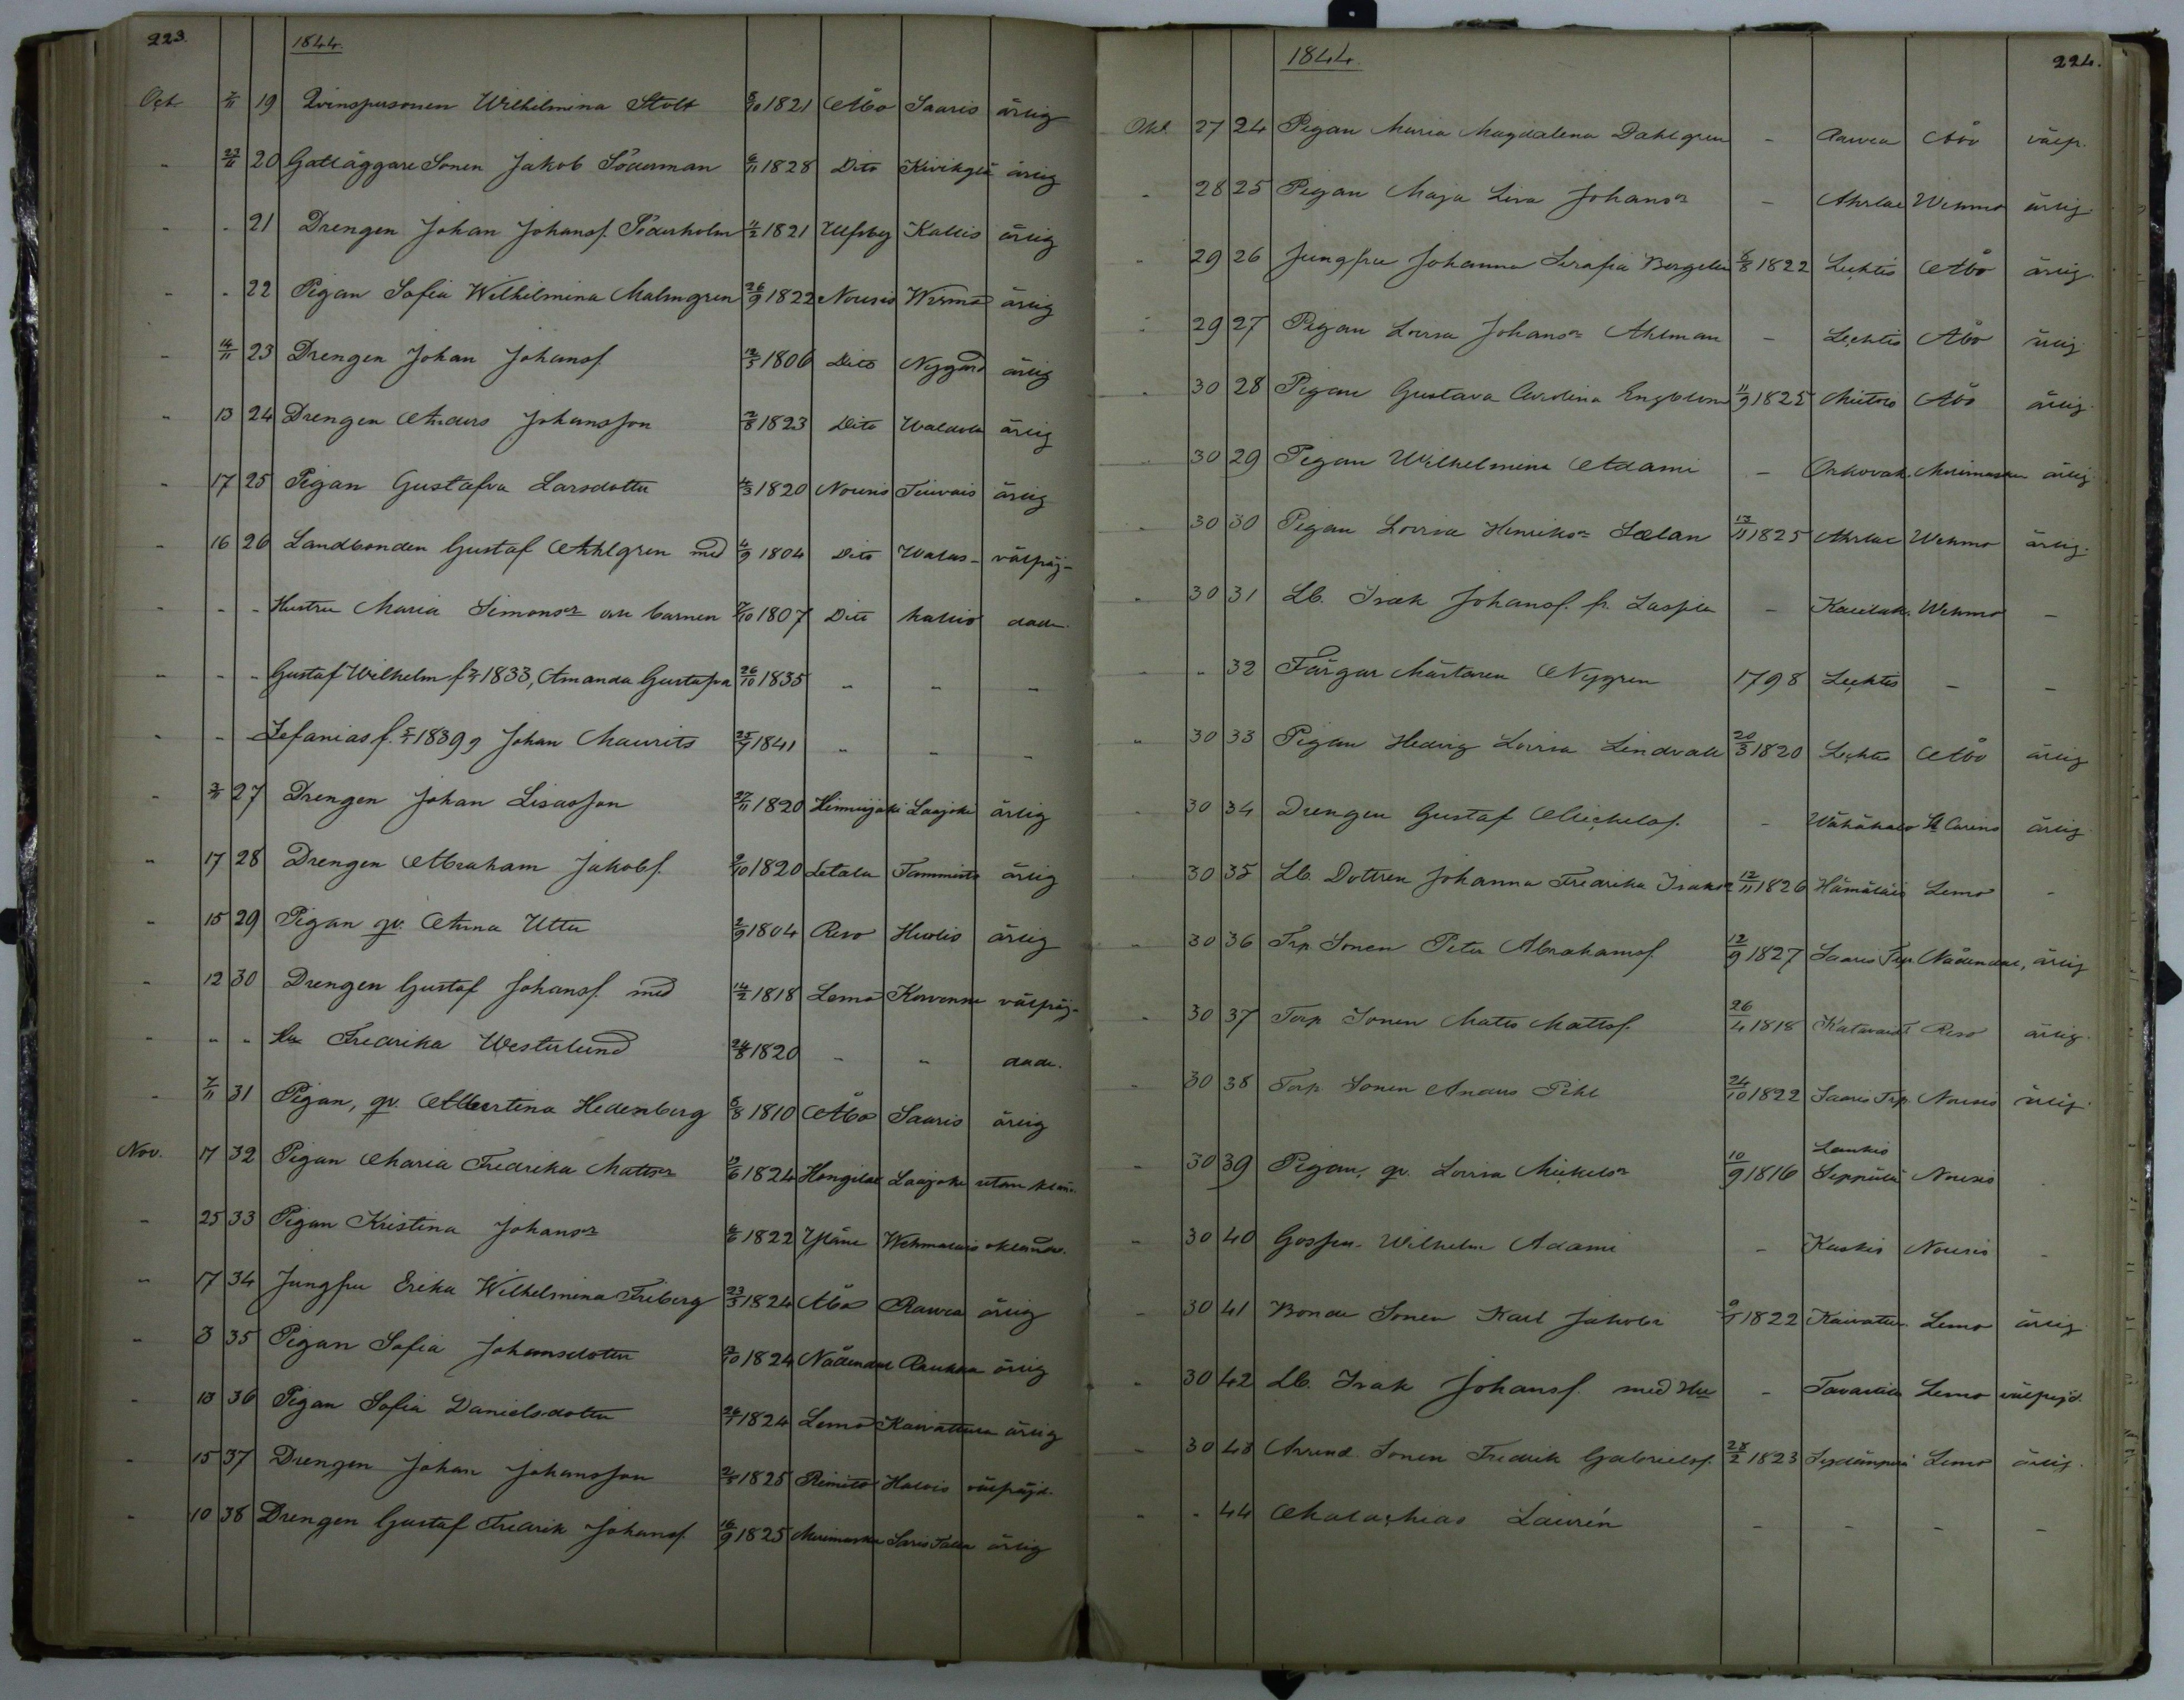 223.
1844.
Oct. 7/11 19 Qvinspersonen Wilhelmina Stolt 5/10 1821 Åbo Saaris ärlig
- 23/11 20 Gatläggare Sonen Jakob Söderman 6/11 1828 Dito Kivikylä ärlig
- - 21 Drengen Johan Johanss. Söderholm 11/2 1821 Ulfsby Kallis ärlig
- - 22 Pigan Sofia Wilhelmina Malmgren 26/9 1822 Nousis Wirmo ärlig
- 14/11 23 Drengen Johan Johanss. 12/5 1806 Dito Nygård ärlig
- 13 24 Drengen Anders Johansson 2/8 1823 Dito ärlig
- 17 25 Pigan Gustafva Larsdotter 4/3 1820 Nousis ärlig
- 16 26 Landbonden Gustaf Ahlgren med 4/9 1804 Dito välfräj-
- - - Hustru Maria Simonsr barnen 7/10 1807 Dito Kallio
- - - Gustaf Wilhelm f. 1833, Amanda Gustafva 26/10 1835 - - -
- - - Zefanias f. 1839, Johan Maurits 25/7 1841 - - -
- 2/11 27 Drengen Johan Lisasson 27/11 1820 Hinnerjoki Laajoki ärlig
- 17 28 Drengen Abraham Jakobs. 9/10 1820 Letala Tamminto ärlig
- 15 29 Pigan qv. Anna Utter 2/9 1804 Reso ärlig
- 12 30 Drengen Gustaf Johanss. med 14/2 1818 Lemo Korvenne välfräj-
- - - Hu Fredrika Westerlund 24/8 1820 - -
- 7/11 31 Pigan, qv. Albertina Hedenberg 5/8 1810 Åbo Saaris ärlig
Nov. 17 32 Pigan Maria Fredrika Mattsr 19/6 1824 Laajoki utan
- 25 33 Pigan Kristina Johansr 6/6 1822 Yläne Wehmalais
- 17 34 Jungfru Erika Wilhelmina Friberg 23/5 1824 Åbo Rawea ärlig
- 3 35 Pigan Sofia Johansdotter 2/10 1824 Nådendal ärlig
- 13 36 Pigan Sofia Danielsdotter 26/7 1824 Lemo Kaivattura ärlig
- 15 37 Drengen Johan Johansson 1825 Rimito välfräjd.
- 10 38 Drengen Gustaf Fredrik Johanss. 16/9 1825 Merimasku ärlig
1844.
224.
Okt. 27 24 Pigan Maria Magdalena Dahlgren - Rawea Åbo välfr.
- 28 25 Pigan Maja Lisa Johansr - Wehmo ärlig.
- 29 26 Jungfru Johanna Serafia 5/8 1822 Lechtis Åbo ärlig.
- 29 27 Pigan Lovisa Johansr Ahlman - Lechtis Åbo ärlig
- 30 28 Pigan Gustava Carolina Engblom 11/9 1825 Åbo ärlig.
- 30 29 Pigan Wilhelmina Adami - Merimasku ärlig.
- 30 30 Pigan Lovisa Henriksr Sælan 13/11 1825 Wehmo ärlig.
- 30 31 Lb. Isak Johanss. fr. Laspila - Wehmo -
- - 32 Färgar Mästaren Nygren 1798 Lechtis - -
- 30 33 Pigan Hedvig Lovisa Lindvall 20/3 1820 Lechtis Åbo ärlig
- 30 34 Drengen Gustaf Michelss. - St Carins ärlig.
30 35 Lb. Dottren Johanna Fredrika Isaksr 12/11 1826 Hämäläis Lemo -
- 30 36 Trp. Sonen Peter Abrahamss. 12/9 1827 Saaris Trp. Nådendal, ärlig
- 30 37 Torp. Sonen Matts Mattss. 26/4 1818 Reso ärlig.
- 30 38 Torp. Sonen Anders Pihl 24/10 1822 Saaris Trp. Nousis ärlig.
- 30 39 Pigan, qv. Lovisa Michelsr 10/9 1816 Seppälä Nousis
- 30 40 Gossen Wilhelm Adami - Kaskis Nousis -
- 30 41 Bonde Sonen Karl Jakobs 1822 Kaivattur. Lemo ärlig
- 30 42 Lb. Isak Johanss. med Hu - Lemo välfrejd.
- 30 43 Arrend. Sonen Fredrik Gabrielss. 28/2 1823 Lemo ärlig.
- - 44 Malachias Laurén - - - -